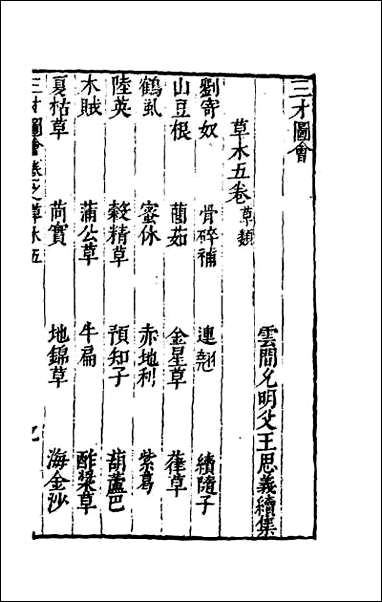 三才圖會
雲間允明父王思義續集
草木五卷 草類
劉寄奴 骨碎補 連翹 續隨子
山豆根 䕡茹 金星草 葎草
鶴虱 蚤休 赤地利 紫葛
陸英 穀精草 預知子 葫蘆巴
木賊 蒲公草 牛扁 酢漿草
夏枯草 茼實 地錦草 海金沙
三才圖會
草木五